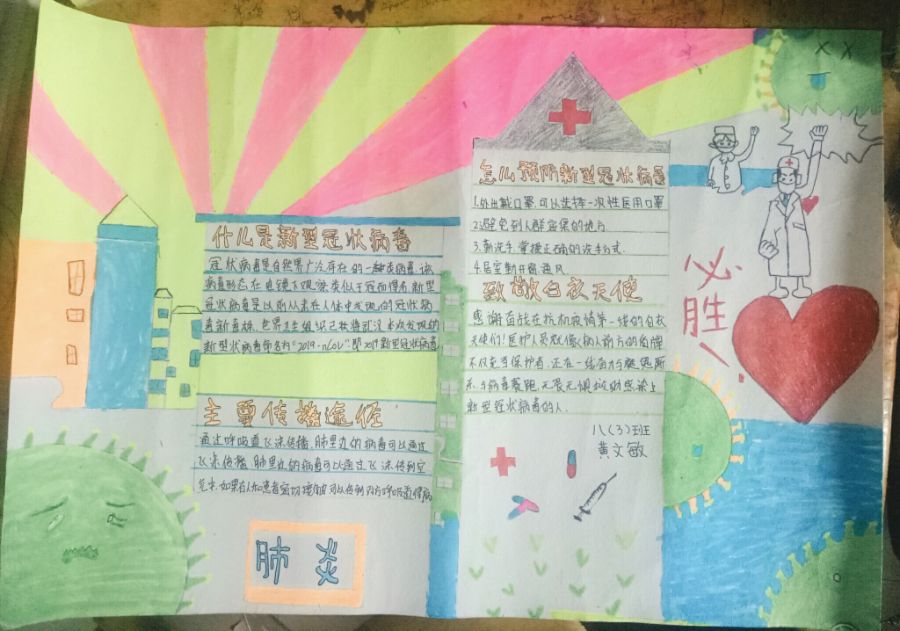 什么是新型冠状病毒
冠状病毒是自然界广泛存在的一种类病毒,该
病毒形态在电镜下观察类似王冠而得名新型
冠状病毒是以前从未在人体中发现的冠状病
毒新毒株.世界卫生组织已
新型状病毒命名为"2019-nCoV"即2019新型冠状病毒
主要传播途径
通过呼吸道飞沫传播.肺里边的病毒可以通过
飞沫传播.肺里边的病毒可以通过飞沫传到空
气中.如果在人和患者密切接触
肺炎
怎么预防新型冠状病毒
1.外出戴口罩,可以选择一次性医用口罩
2.避免到人群密集的地方
3.勤洗手,掌握正确的洗手方式
4.居室制开窗通风
致敬白衣天使
感谢奋战在抗击疫情第一线的白衣
天使们!医护人员就像病人前方的盾牌
不仅充当保护者,还在一线
与病毒赛跑.无畏无惧救助感染上
新型冠状病毒的人.
八(3)班
黄文敏
必胜!